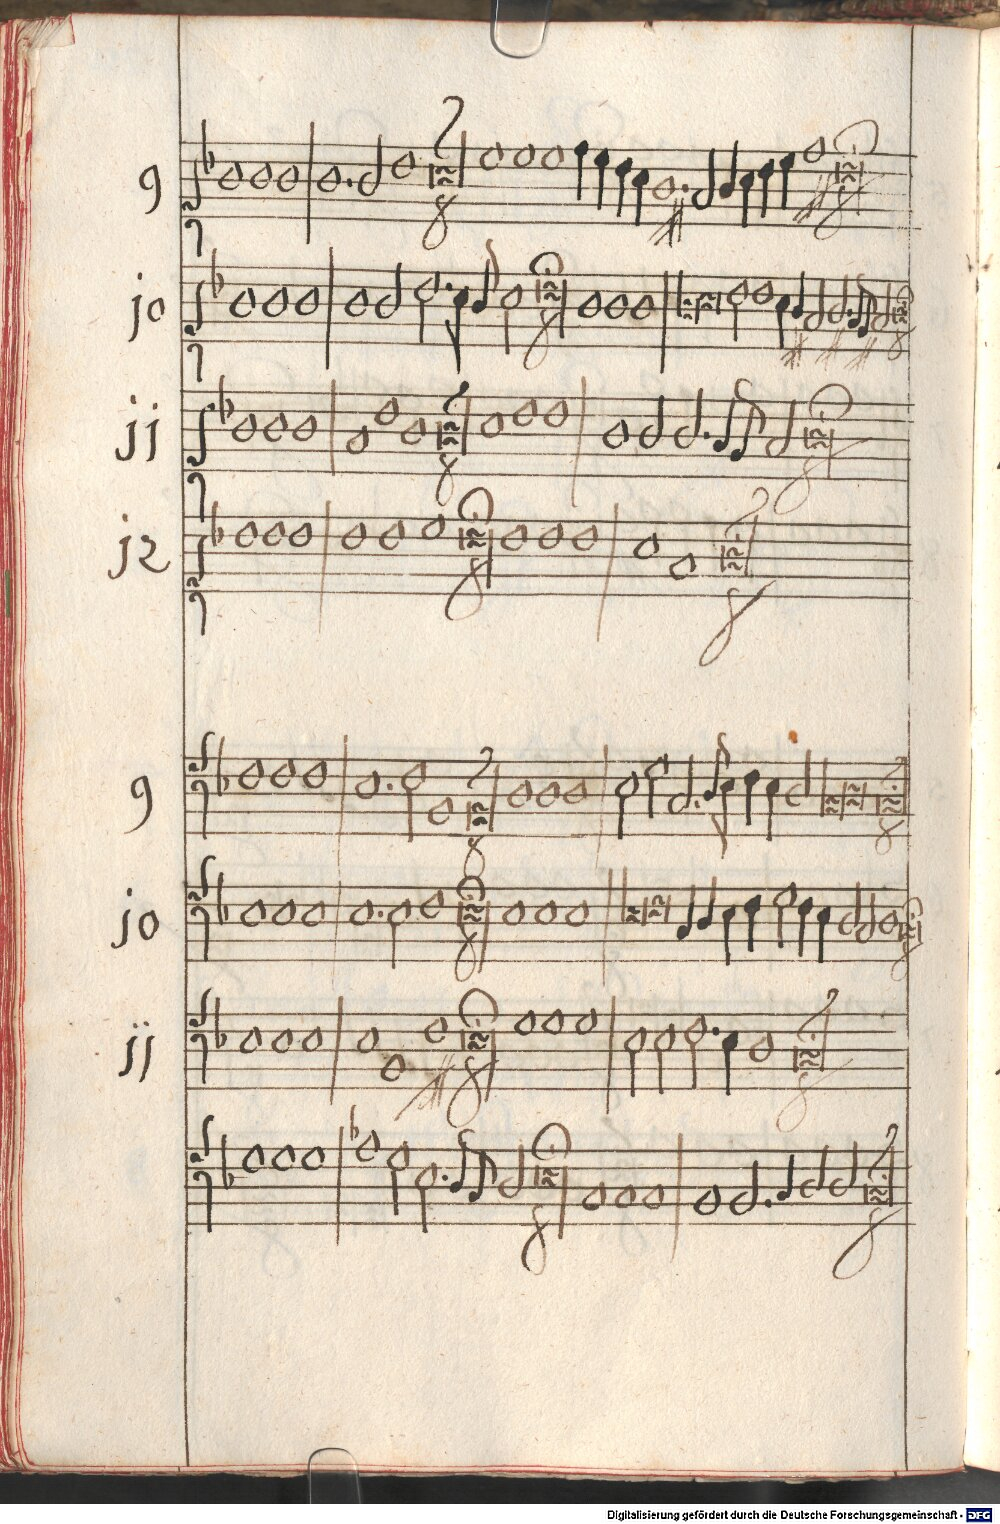 9
jo
jj
j2
9
jo
jj
Digitalisierung gefördert durch die Deutsche Forschungsgemeinschaft - DFG